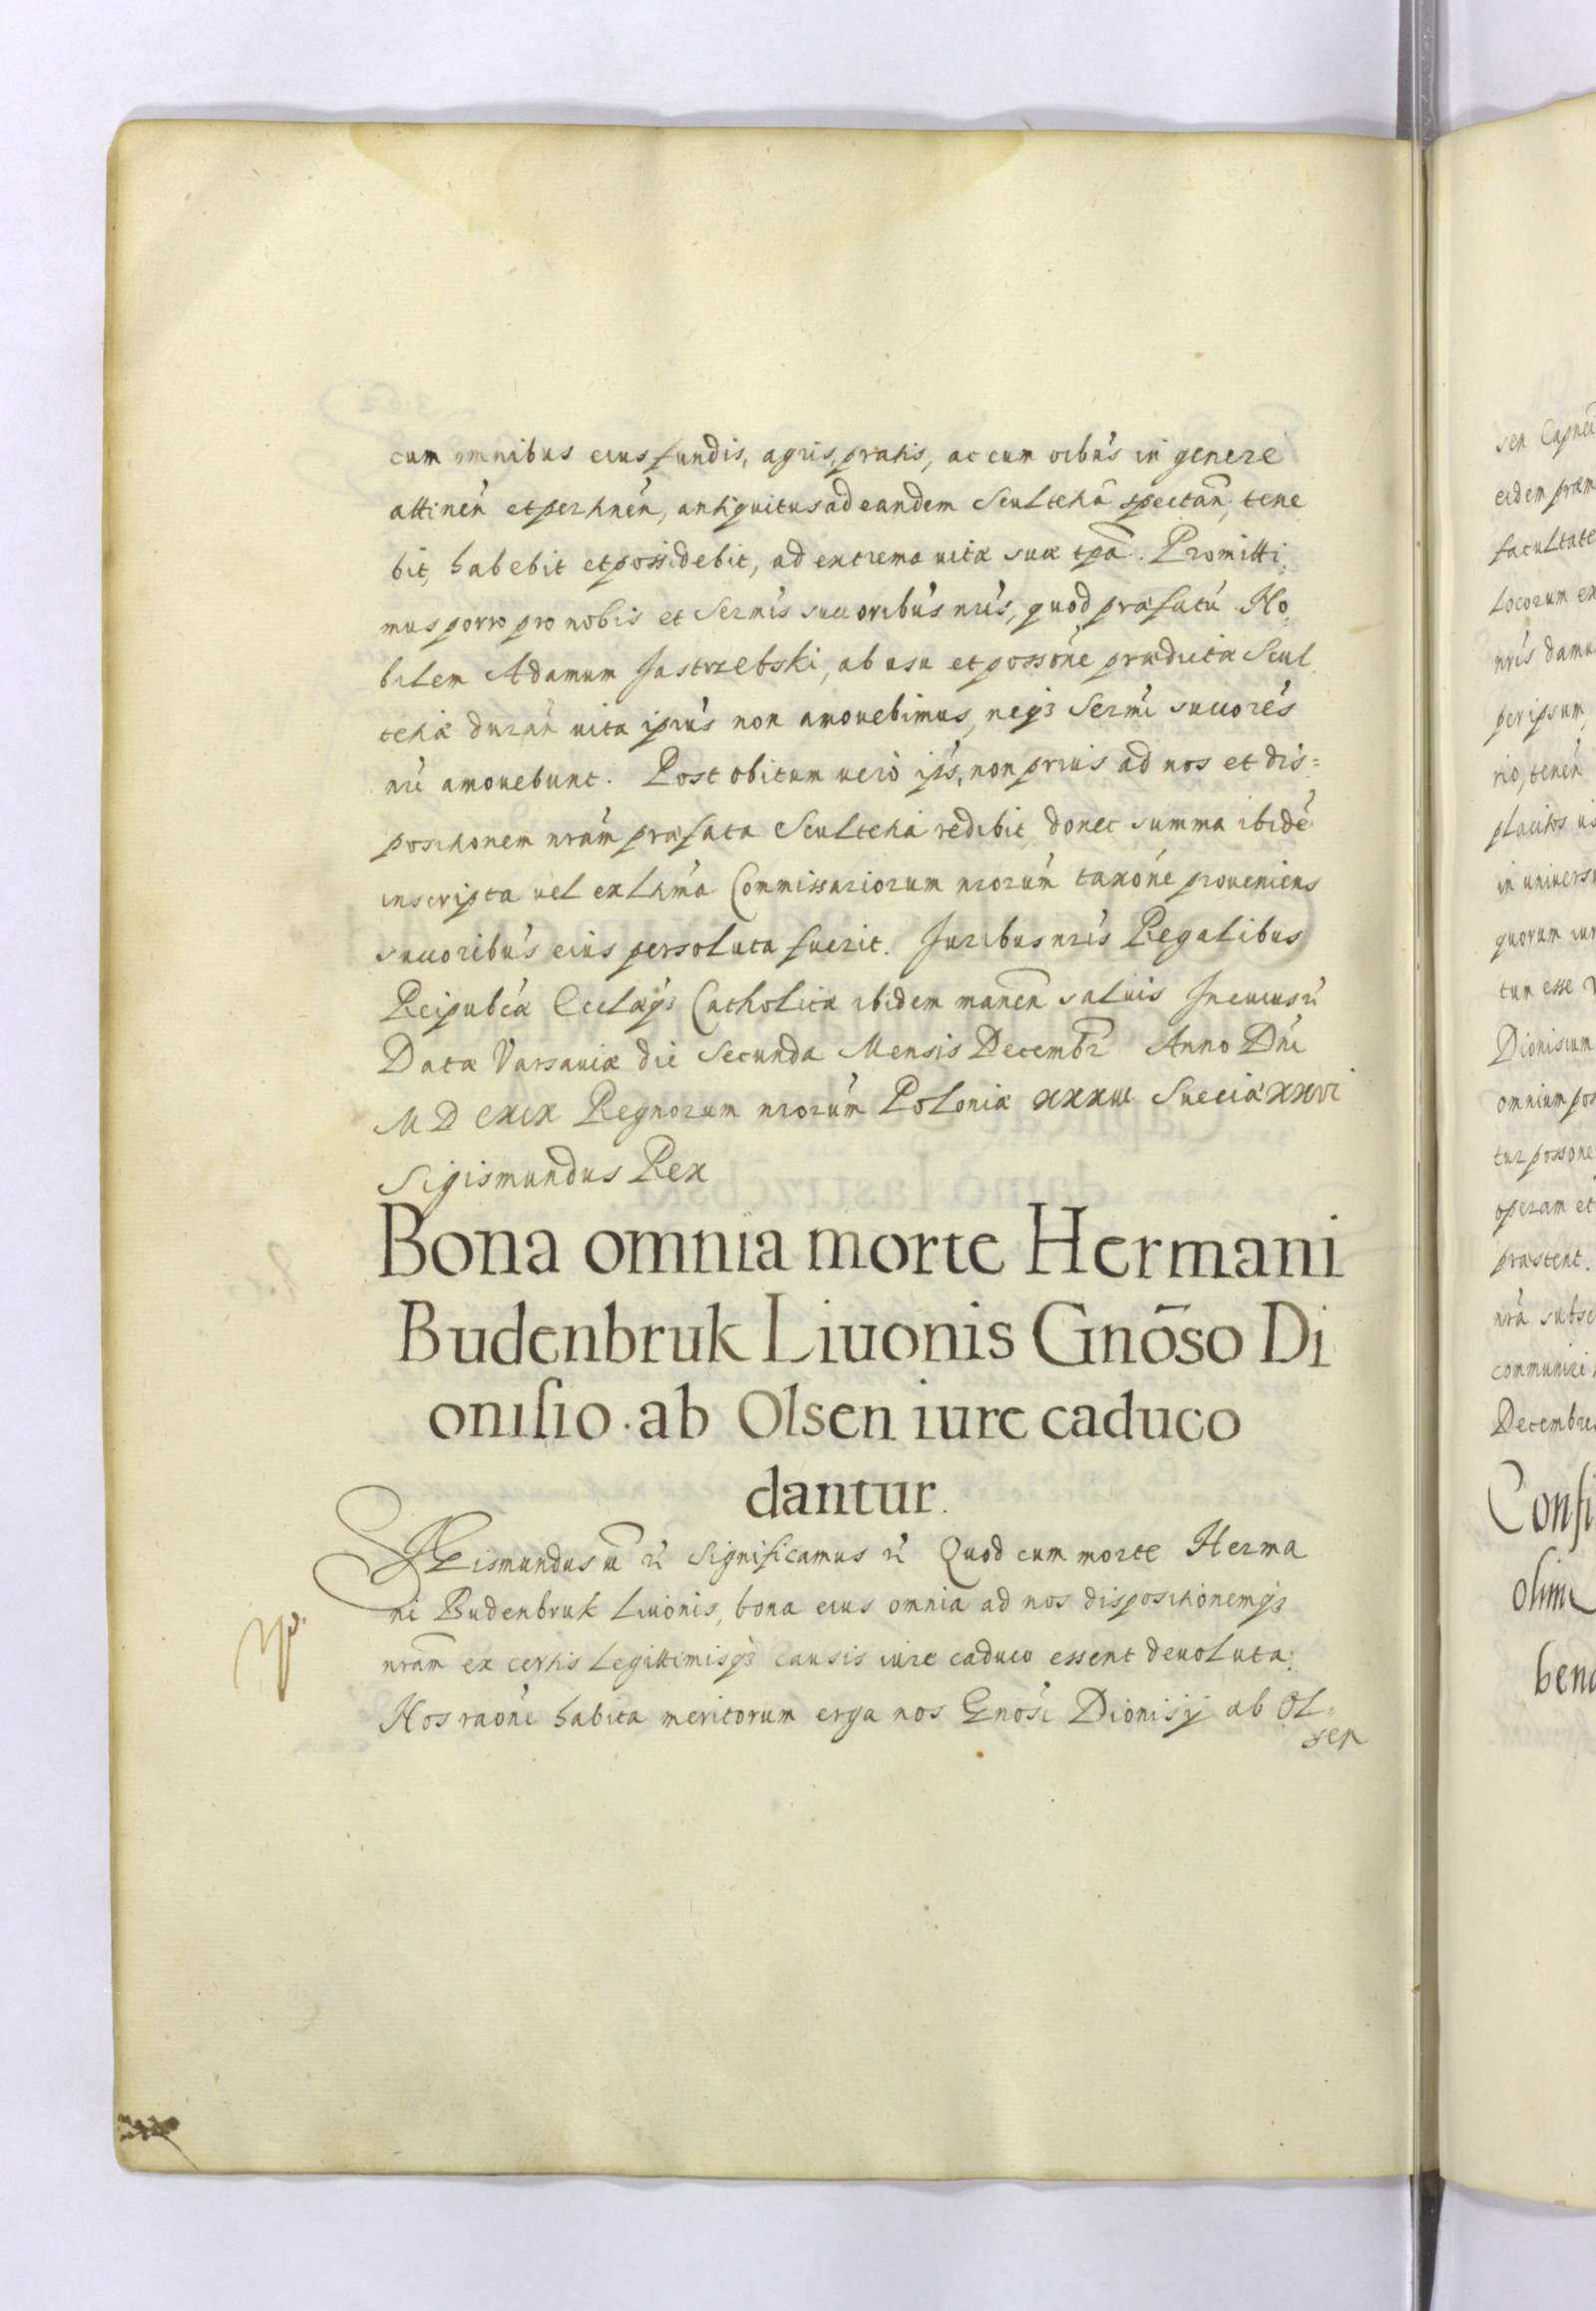 cum omnibus eius fundis, agris, pratis, ac cum oibús in genere
attinén et pertinén, antiquitus ad eandem Scultetiã spectañ, tene
bit, habebit et possidebit, ad extrema vitæ suæ tpa. Promitti,
mus porro pro nobis et Sermis succoribús nris, quod præfatú No,
bilem Adamum Jastrzebski, ab usu et possóne prædictæ Scul,
tetiæ durañ vita ipiús non amovebimus, neq3 Sermi succorés
nri amovebunt. Post obitum verò ips, non prius ad nos et dis=
positionem nram præfata Scultetia redibit donec summa ibidé
inscripta vel ex Ltima Commissariorum nrorum taxóne proveniens
succoribús eius persoluta fuerit. Juribus nris Regalibus
Reipubcæ Ecclæq3 Catholicæ ibidem manen salvis In cuius rei
Datæ Varsaviæ die Secunda Mensis Decembr Anno Dni
M D CXIX Regnorum nrorum Poloniæ xxxiii Sueciæ xxvi
Sigismundus Rex
Bona omnia morte Hermani
Budenbruk Liuonis Gnõso Di
onisio ab Olsen iure caduco
dantur.
Sigismundus Significamus Quod cum morte Herma
ni Budenbruk Livonis, bona eius omnia ad nos dispositionemq3
nram ex certis Legittimisq3 causis iure caduco essent devoluta:
Nos raóne habita meritorum erga nos Gnosi Dionisij ab Ol,
sen
sen
eidem
facultate
Locorum ex
nris damu
per ipsum
rio, tenén
placitos
in univers
quorum iur
tum esse
Dionisium
omnium pos
tur possone
operam et
præstent.
nra subsc
communiri
Decembris
Confi
olim
bena